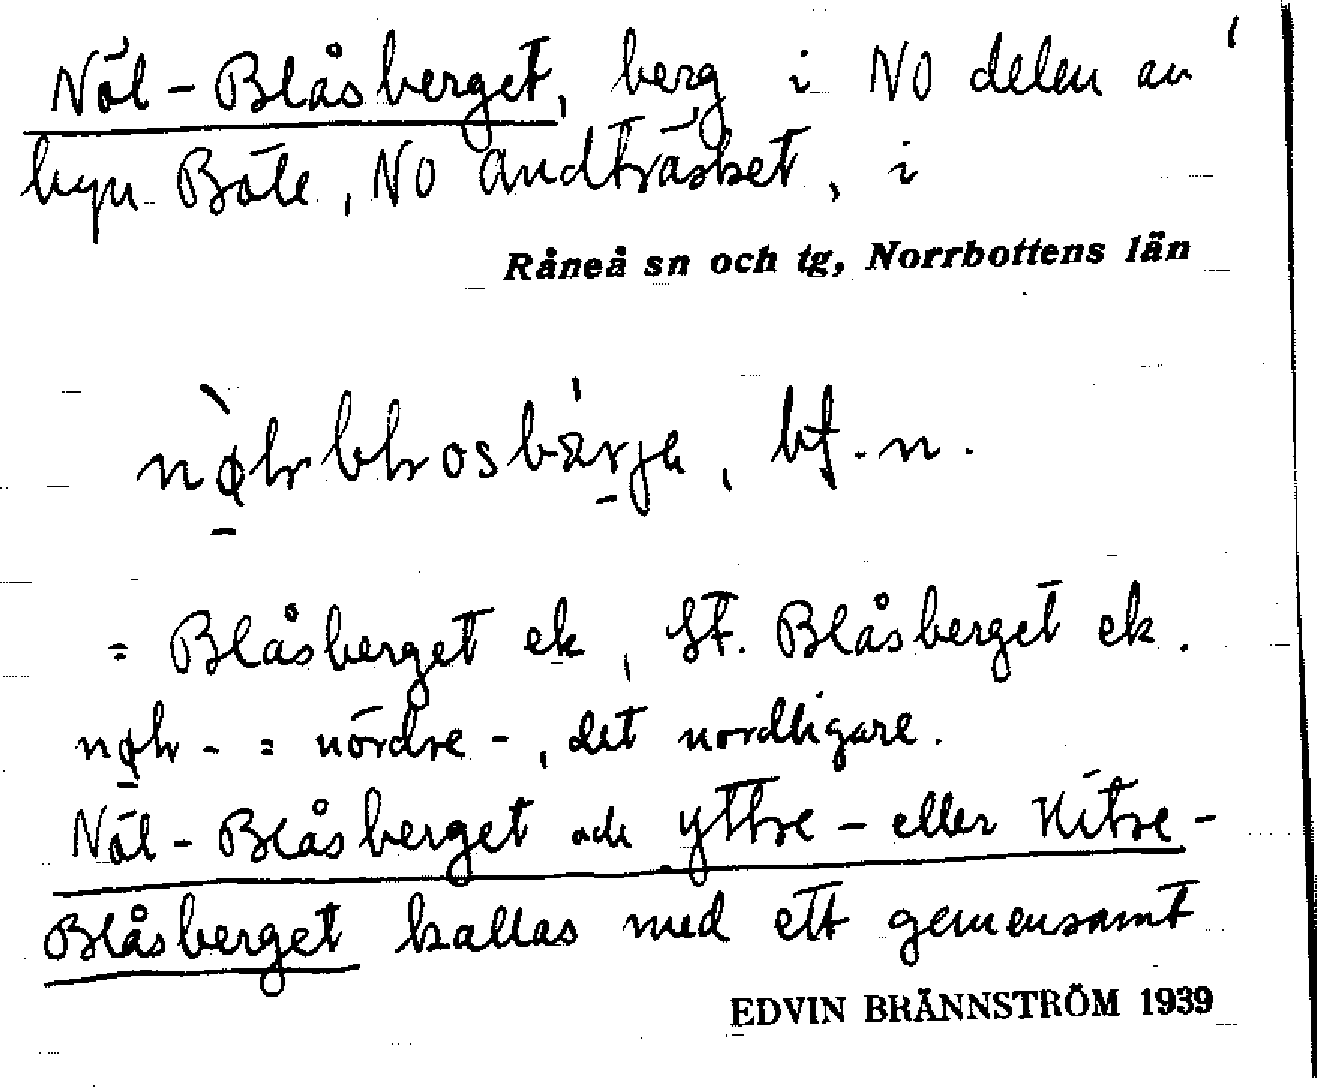 Nöl-Blåsberget, berg i NO delen av
byn Böle, NO Andträsket, i
Råneå sn och tg, Norrbottens län
bf. n.
= Blåsberget ek, St. Blåsberget ek.
= nördre -, det nordligare.
Nöl-Blåsberget och yttre- eller Hitre-
Blåsberget kallas med ett gemensamt
EDVIN BRÄNNSTRÖM 1939